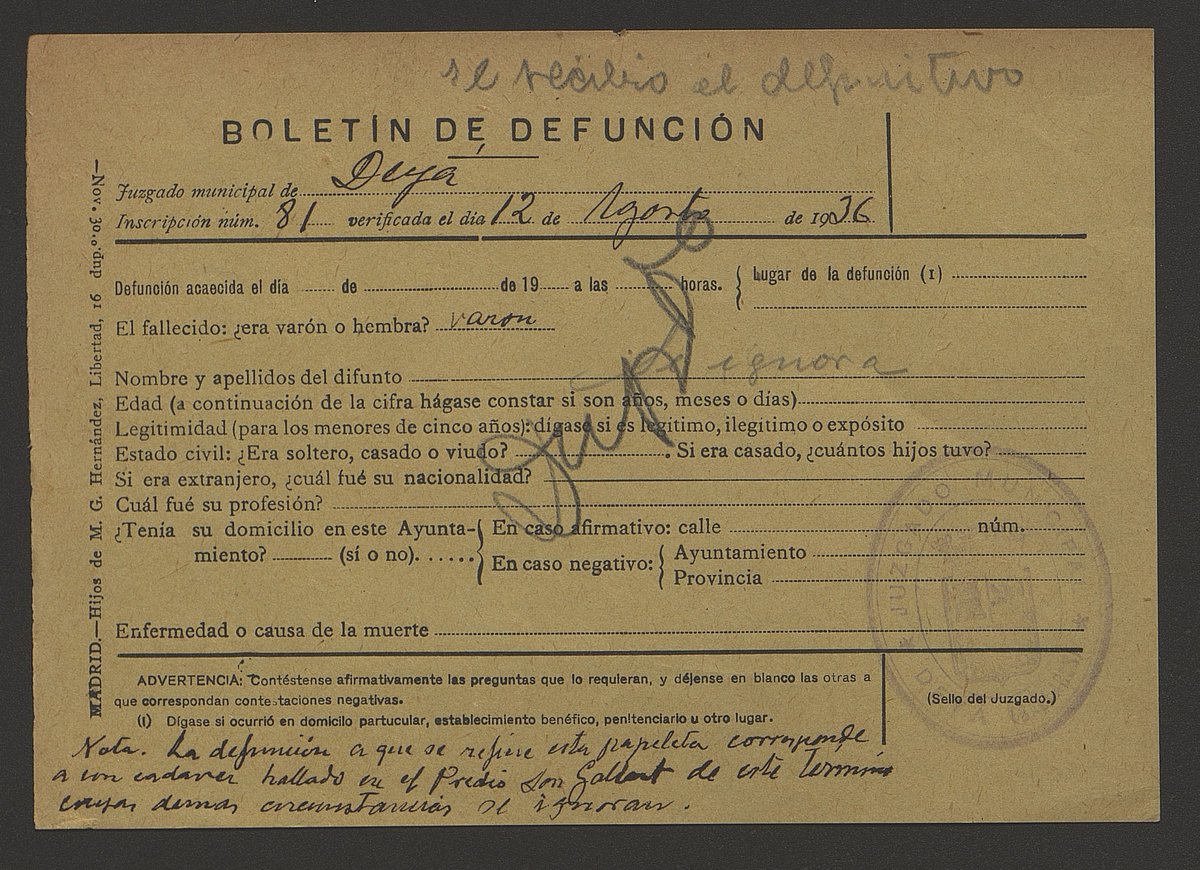 se recibio el definitivo
BOLETÍN DE DEFUNCIÓN
Juzgado municipal de Deyá
Inscripción núm. 81 verificada el día 12 de Agosto de 1936
Defunción acaecida el día de de 19 a las horas. { Lugar de la defunción (1)
El fallecido: ¿era varón o hembra? varon
Nombre y apellidos del difunto se ignora
Edad (a continuación de la cifra hágase constar si son años, meses o días)
Legitimidad (para los menores de cinco años): dígase si es legítimo, ilegítimo o expósito
Estado civil: ¿Era soltero, casado o viudo? . Si era casado, ¿cuántos hijos tuvo?
Si era extranjero, ¿cuál fué su nacionalidad?
Cuál fué su profesión?
¿Tenía su domicilio en este Ayunta-
miento? (sí o no).
En caso afirmativo: calle núm.
En caso negativo: { Ayuntamiento
Provincia
Enfermedad o causa de la muerte
ADVERTENCIA: Contéstense afirmativamente las preguntas que lo requieran, y déjense en blanco las otras a
que correspondan contestaciones negativas.
(1) Dígase si ocurrió en domicilio partucular, establecimiento benéfico, penitenciario u otro lugar.
(Sello del Juzgado.)
JUZGADO MUNICIPAL
Nota. La defunción a que se refiere esta papeleta corresponde
a un cadaver hallado en el Predio Son Gallart de este término
cuyas demas circunstancias se ignoran.
MADRID.—Hijos de M. G. Hernández, Libertad, 16 dup.º.º.30—Nov.